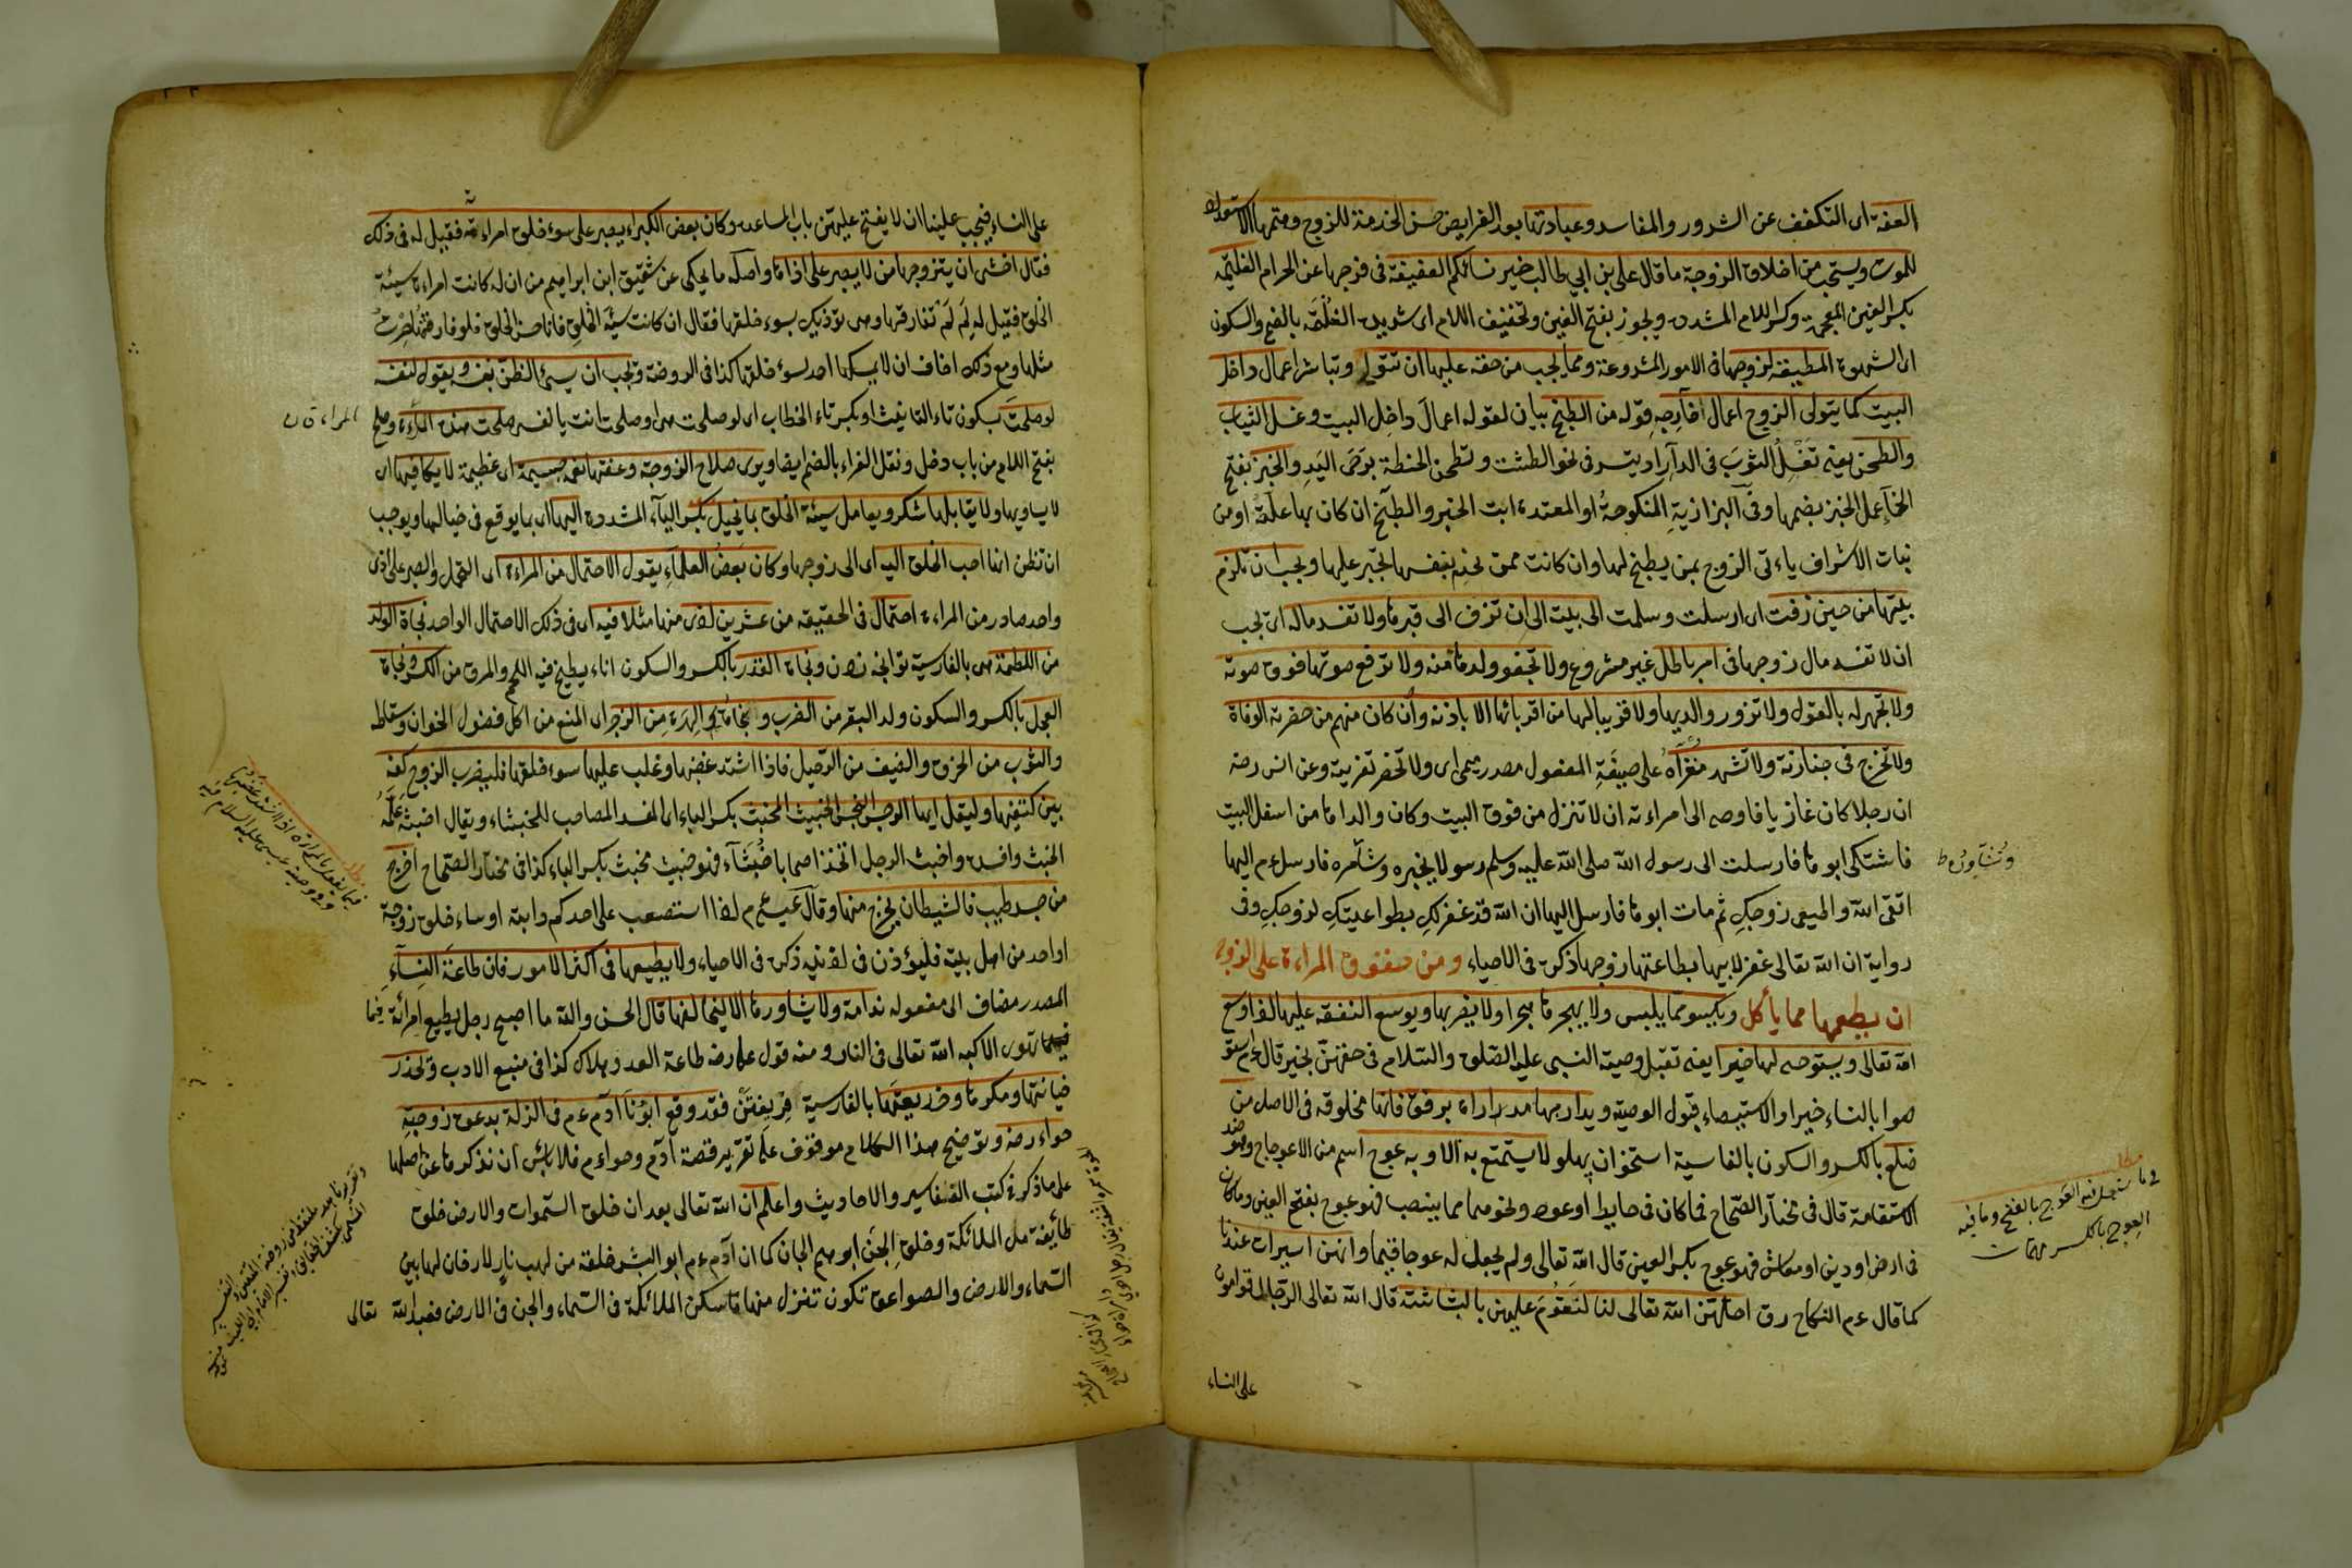 العفة اى التكفف عن الشرور والمفاسد وعبادتها بعد الفرايض حسن الخدمة للزوج ومتمها الاستعداد
للموت ويستحب من اخلاق الزوجة ما قال على بن ابي طالب خير نسائكم العفيفة فى فرجها عن الحرام الغلمة
بكسر الغين المعجمة وكسر اللام المشددة ويجوز بفتح الغين وتخفيف اللام اى شديدة الغلمة بالضم والسكون
اى الشهوة المطيقة لزوجها فى الامور المشروعة ومما يجب من حقه عليها ان تتولى وتباشر اعمال داخل
البيت كما يتولى الزوج اعمال خارجه قوله من الطبخ بيان لقوله اعمال داخل البيت وغسل الثياب
والطحن يعنى تغسل الثوب فى الدار اذ يتسر فى نحو الطشت وتطحن الحنطة برحى اليد والخبز بفتح
الخاء عمل الخبز بضمها وفى البزازية المنكوحة او المعتدة ابت الخبز والطبخ ان كان بها علة او من
بنات الاشراف ياءتى الزوج بمن يطبخ لها وان كانت ممن تخدم بنفسها تجبر عليها ويجب ان تلزم
بيتها من حين زفت اى ارسلت وسلمت الى بيته الى ان تزف الى قبرها ولا تفسد ماله اى يجب
ان لا تفسد مال زوجها فى امر باطل غير مشروع ولا تجفو ولدها منه ولا ترفع صوتها فوق صوته
ولا تجهر له بالقول ولا تزور والديها ولا قريبا لها من اقربائها الا باذنه وان كان منهم من حضرته الوفاة
ولا تخرج فى جنازته ولا تشهد معزاه على صيغة المفعول مصدر ميمى اى ولا تحضر تعزيته وعن انس رضه
ان رجلا كان غازيا فاوصى الى امراءته ان لا تنزل من فوق البيت وكان والدها من اسفل البيت
فاشتكى ابوها فارسلت الى رسول الله صلى الله عليه وسلم رسولا يخبره وتشآمره فارسل ءم اليها
وتشاوره ط
اتقى الله واطيعى زوجك ثم مات ابوها فارسل اليها ان الله قد غفر لك بطواعيتك لزوجك وفى
رواية ان الله تعالى غفر لابيها بطاعتها زوجها ذكره فى الاحياء ومن حقوق المراءة على الزوج
ان يطعمها مما يأكل ويكسو مما يلبس ولا يهجرها هجرا ولا يضربها ويوسع النفقة عليها لقا اوسع
الله تعالى ويستوصى لها خيرا يعنى تقبل وصية النبى عليه الصلوة والسلام فى حقهن بخير قال ءم استو
صوا بالنساء خيرا والاستيصاء قبول الوصية ويداريها مداراة برفق فانها مخلوقة فى الاصل من
ضلع بالكسر والسكون بالفاسية استخوان پهلو لا يستمتع به الا وبه عوج اسم من الاعوجاج وهو ضد
الاستقامة قال فى مختار الصحاح فما كان فى حايط او عود ونحوهما مما ينصب فهو عوج بفتح العين وما كان
مطلب
فى ما يستعمل فيه العوج بالفتح وما فيه
العوج بالكسر مهمات
فى ارض او دين او معاش فهو عوج بكسر العين قال الله تعالى ولم يجعل له عوجا قيما وانهن اسيرات عندنا
كما قال ءم النكاح رق احلهن الله تعالى لنا لنقوم عليهن بالبشاشة قال الله تعالى الرجال قوامون
على النساء
على النساء فيجب علينا ان لا يفتح عليهن باب المساعدة وكان بعض الكبراء يصبر على سوء خلق امراءته فقيل له فى ذلك
فقال اخشى ان يتزوجها من لا يصبر على اذاها واصله ما يحكى عن شقيق ابن ابراهيم من ان له كانت امراءة سيئة
الخلق فقيل له لم لم تفارقها وهى تؤذيك بسوء خلقها فقال ان كانت سيئة الخلق فانا حسن الخلق فلو فارقتها صرت
مثلها ومع ذلك اخاف ان لا يمسكها احد لسوء خلقها كذا فى الروضة ويجب ان يسئ الظن بنفسه ويقول لنفسه
لو صلحت بسكون تاء التانيث او بكسر تاء الخطاب اى لو صلحت هى او صلحت انت يا نفسى صلحت هذه المراءة وصلح
بفتح اللام من باب دخل ونقل الفراء بالضم ايضا ويرى صلاح الزوجة وعفتها نعمة جسيمة اى عظيمة لا يكافيها اى
لا يساويها ولا يقابلها شكر ويعامل سيئة الخلق بما يخيل بكسر الياء المشددة اليها اى بما يوقع فى خيالها ويوجب
ان تظن انها احب الخلق اليه اى الى زوجها وكان بعض العلماء يقول الاحتمال من المراءة اى التحمل والصبر على اذى
واحد صادر من المراءة احتمال فى الحقيقه من عشرين اذى منها مثلا فيه اى فى ذلك الاحتمال الواحد نجاة الولد
من اللطمة هى بالفارسية تو انچه زدن ونجاة القدر بالكسر والسكون اناء يطبخ فيه اللحم والمرق من الكسر ونجاة
العجل بالكسر والسكون ولد البقر من الضرب ونجاة الهرة من الزجر اى المنع من اكل فضول الخوان وسقاطه
والثوب من الحزق والضيف من الرحيل فاذا اشتد غضبها وغلب عليها سوء خلقها فليضرب الزوج كفه
بين كتفيها وليقل ايها الرجس النجس الخبيث المخبث بكسر الباء اى المفسد المصاحب للخبثاء ويقال اخبثه علمه
الخبث وافسده واخبث الرجل اتخذ اصحابا خبثآء فهو خبيث مخبث بكسر الباء كذا فى مختار الصحاح اخرج
من جسد طيب فالشيطان يخرج منها وقال عيسى م اذا استصعب على احدكم دابته او ساء خلق زوجة
او احد من اهل بيته فليؤذن فى اذنيه ذكره فى الاحياء ولا يطيعها فى اكثر الامور فان طاعة النساء
المصدر مضاف الى مفعوله ندامة ولا يشاورها الا ليخالفها قال الحسن والله ما اصبح رجل يطيع امرأته فيما
تهوى الا كبه الله تعالى فى النار ومنه قول على رضه طاعة العدو هلاك كذا فى منبع الادب ويحذر
خيانتها ومكرها وخديعتها بالفارسية فريفتن فقد وقع ابونا آدم ءم فى الزلة بدعوة زوجته
حواء رضه وتوضيح هذا الكلام موقوف على تقرير قصة آدم وحواءم فلا بأس ان نذكرها عن اصلها
على ما ذكر فى كتب التفاسير والاحاديث واعلم ان الله تعالى بعد ان خلق السموات والارض خلق
طائفة من الملائكة وخلق الجن ابوهم الجان كما ان آدم ءم ابو البشر خلقه من لهب نار لا دخان لها بين
السماء والارض والصواعق تكون تنزل منها فاسكن الملائكة فى السماء والجن فى الارض فعبد الله تعالى